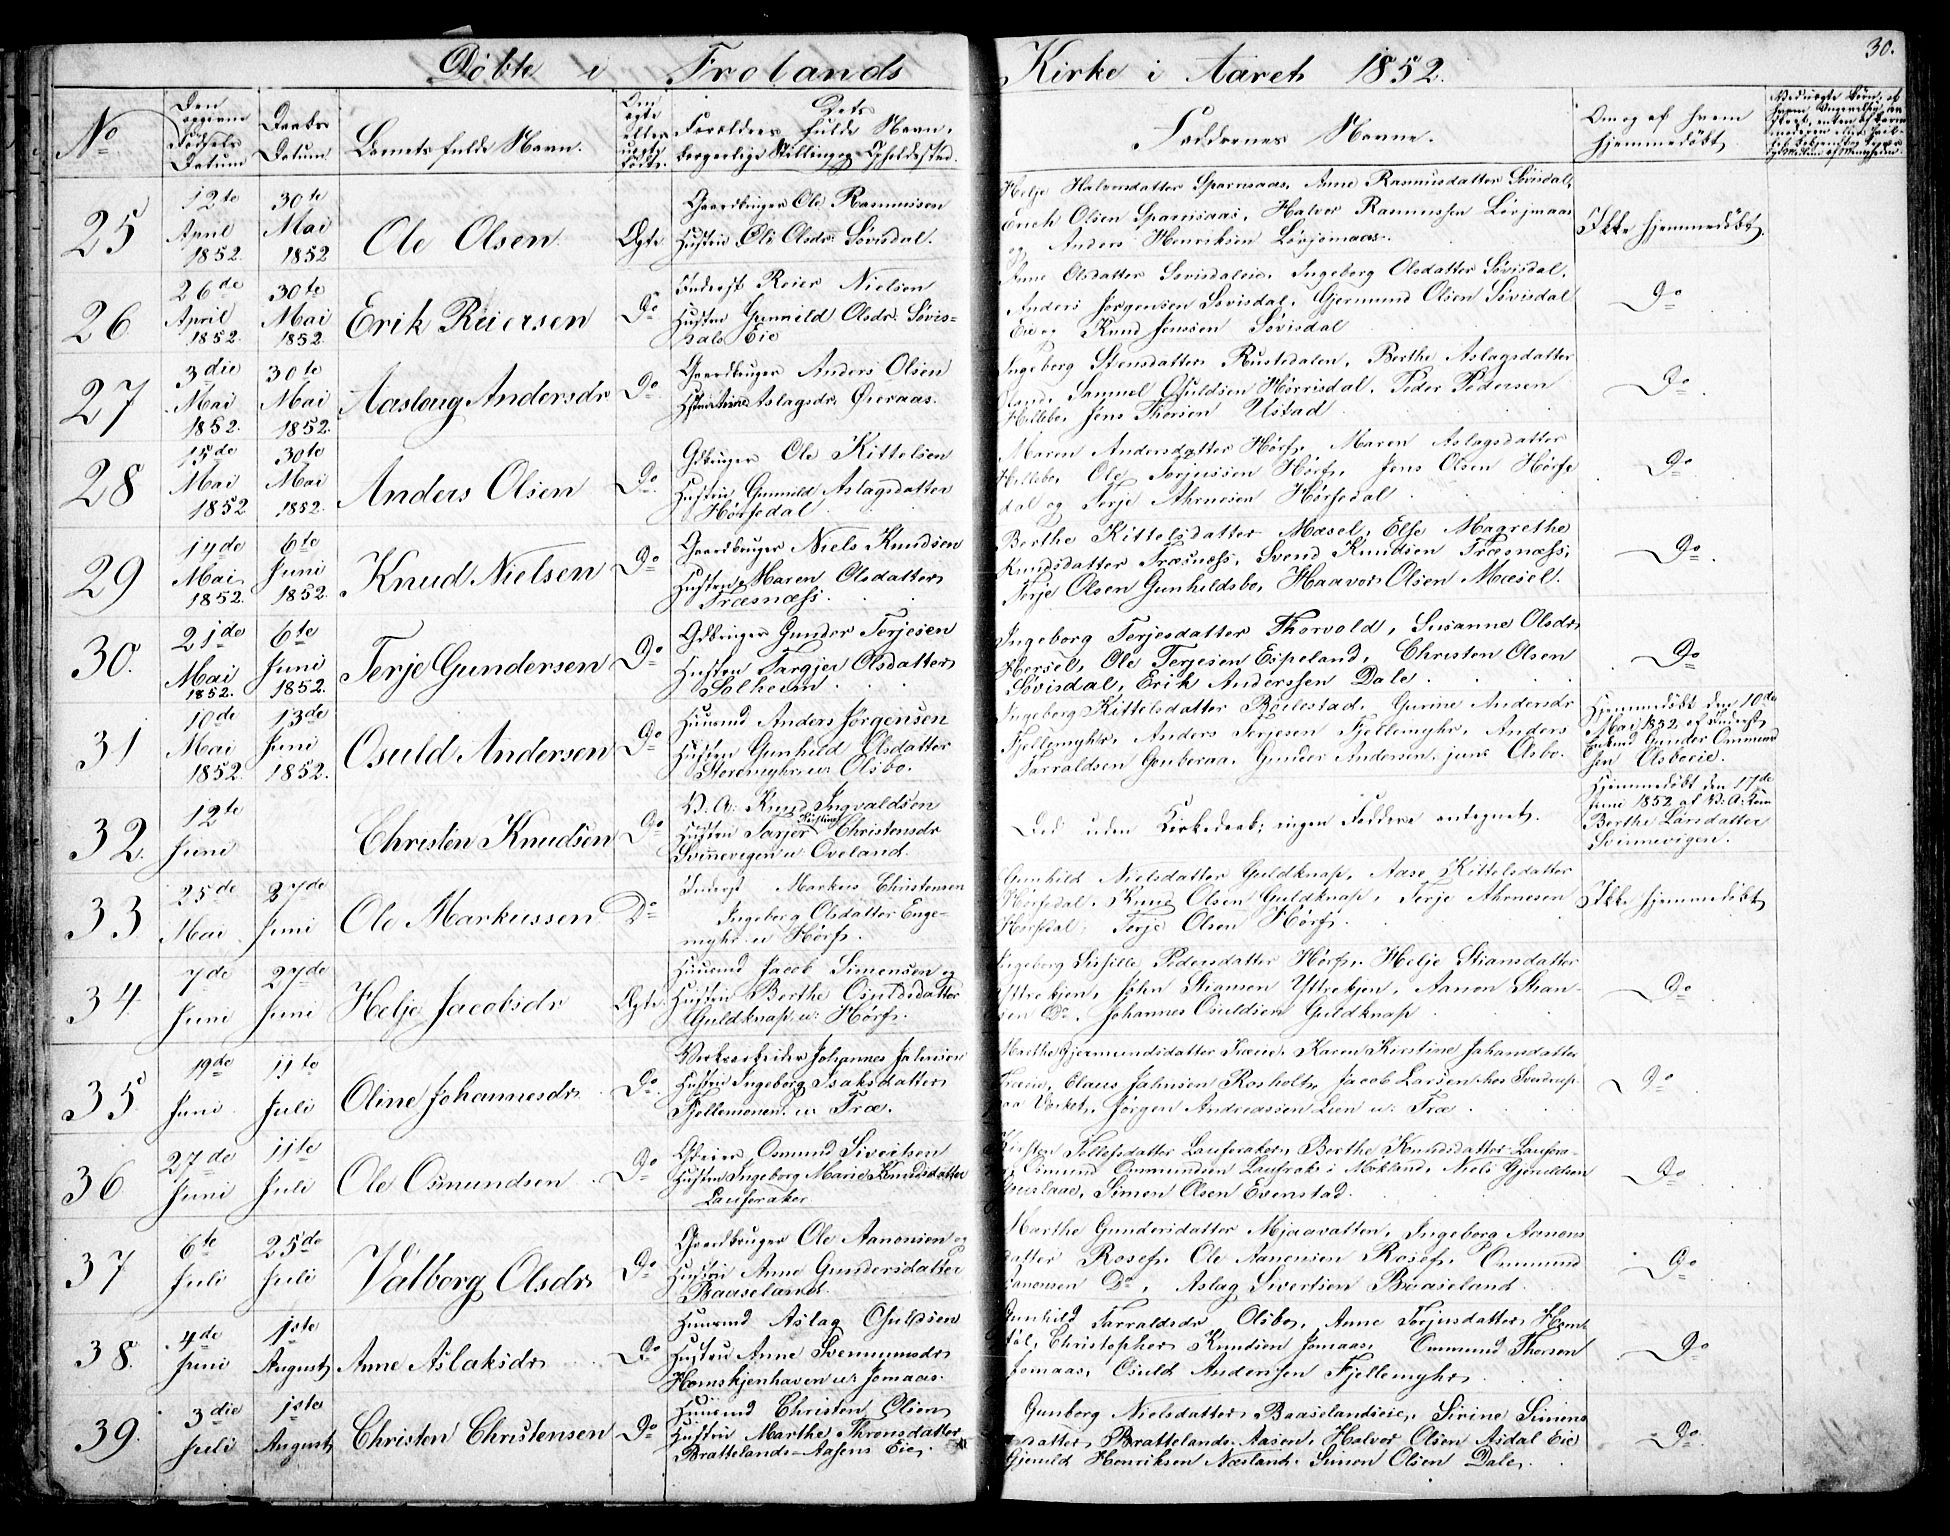 30.
Døbte i Frolands Kirke i Aaret 1852.
No
Den opgivne Fødsels Datum
Daabs Datum
Barnets fulde Navn.
Om ægte eller uægte født.
Dets Forældres fulde Navn, borgerlige Stilling og Opholdssted.
Faddernes Navne.
Om og af hvem hjemmedøbt
25
12te April 1852.
30te Mai 1852
Ole Olsen
Ægte
Gaardbruger Ole Rasmussen
Hustru Olsdr. Søvisdal.
Helje Halvorsdatter Sparsaas, Anne Rasmusdatter Søvisdal,
Erich Olsen Sparsaas, Halvor Rasmussen Løvjomaas
og Anders Henriksen Løvjomaas.
Ikke hjemmedøbt.
26
26de April 1852.
30te Mai 1852.
Erik Reiersen
Do
Inderst Reier Nielsen
Hustru Gunnild Olsdr. Søvis-
dals Eie
Anne Olsdatter Søvisdaleie, Ingeborg Olsdatter Søvisdal,
Anders Jørgensen Søvisdal, Gjermund Olsen Søvisdal
Eie og Knud Jensen Søvisdal
Do
27
3die Mai 1852.
30te Mai 1852.
Aaslaug Andersdr
Do
Gaardbruger Anders Olsen
Aslagsdr. Øieraas.
Ingeborg Stensdatter Rustedalen, Berthe Aslagsdatter
Samuel Osuldsen Hørrisdal, Peder Pedersen
Hillebo, Jens Thorsen Ustad.
Do
28
15de Mai 1852
30te Mai 1852.
Anders Olsen
Do
Gdbruger Ole Kittelsen
Hustru Gunnild Aslagsdatter
Hørsedal.
Maren Andersdatter Hørse, Maren Aslagsdatter
Hillebo, Ole Torjussen Hørse, Jens Olsen Hørse
dal og Terje Ahrnesen Hørsedal
Do
29
14de Mai 1852.
6te Juni 1852.
Knud Nielsen
Do
Gaardbruger Niels Knudsen
Hustru Maren Olsdatter
Træsnæss.
Berthe Kittelsdatter Mæsel, Else Magrethe
Knudsdatter Træsnæss, Svend Knudsen Træsnæss,
Terje Olsen Gunhildsbo, Haavor Olsen Mæsel.
Do
30.
21de Mai 1852.
6te Juni 1852.
Terje Gundersen
Do
Gdbruger Gunder Terjesen
Hustru Targjer Olsdatter
Solheim
Ingeborg Terjesdatter Thorvold, Susanne Olsdr
Hersel, Ole Terjesen Espeland, Christen Olsen
Søvisdal, Erik Anderssen Dale.
Do
31
10de Mai 1852.
13de Juni 1852.
Osuld Andersen
Do
Huusmd Anders Jørgensen
Hustru Gunhild Olsdatter
Storemyhr u. Olsbo.
Ingeborg Kittelsdatter Bøilestad, Gurine Andersdr
Fjellemyhr, Anders Terjesen Fjellemyhr, Anders
Tarraldsen Gauberaa, Gunder Andersen, juns Olsbo.
Hjemmedøbt den 10de
Mai 1852 af Inderst
Gunder Ommund
sen Olsboeie.
32.
12te Juni
Christen Knudsen
Do
V. A. Knud Ingvaldsen
Hustru Tarjer Kirstine Christensdr
Svinnevigen u. Oveland.
Død uden Kirkedaab, ingen Faddere antegnet.
Hjemmedøbt den 17de
Juni 1852 af
Berthe Larsdatter
Svinnevigen.
33
25de Mai
27de Juni
Ole Markussen
Do
Inderst Markus Christensen
Ingeborg Olsdatter Enge-
myhr u Hørse.
Gunhild Nielsdatter Guldknap, Aase Kittelsdatter
Hørsedal, Knud Olsen Guldknap, Terje Ahrnesen
Hørsedal, Terje Olsen Hørse.
Ikke hjemmedøbt
34
7de Juni
27de Juni
Helje Jacobsdr
Ægte
Huusmd Jacob Simonsen og
Hustru Berthe Osuldsdatter
Guldknap u. Hørse.
Ingeborg Sisille Pedersdatter Hørse, Helje Stiansdatter
Yttrekjen, John Stiansen Yttrekjen, Aanon Stian-
sen Do, Johannes Osuldsen Guldknap
Do
35
19de Juni
11te Juli
Oline Johannesdr
Do
Verksarbeider Johannes Jahnsen
Hustru Ingeborg Isaksdatter
Fjellemonen u. Træ.
Marthe Gjermundsdatter Træeie, Karen Kirstine Jahansdatter
Træeie, Claus Jahnsen Rosholt, Jacob Larsen hos Sverdrup
paa Verket, Jørgen Andreassen Lien u. Træ.
Do
36
27de Juni
11te Juli
Ole Osmundsen
Do
Osmund Sivertsen
Hustru Ingeborg Marie Knudsdatter
Lauvraker
Kirsten Tellefsdatter Lauvraker, Berthe Knudsdatter Lauvra-
Osmund Ommundsen Lauvrak i Mykland, Niels Gjeruldsen
Simon Olsen Evenstad.
Do
37
6te Juli
25de Juli
Valborg Olsdr
Do
Gaardbruger Ole Aanonsen og
Hustru Anne Gundersdatter
Baaseland.
Marthe Gundersdatter Mjaavatten, Ingeborg Aanons
datter Rosef, Ole Aanonsen Rosef, Ommund
Aanonsen Do, Aslag Sivertsen Baaseland.
Do
38.
4de Juni
1ste August
Anne Aslaksdr
Do
Huusmd Aslag Osuldsen
Hustru Anne Svennumsdr
Homskjenhaven u. Jomaas.
Gunhild Tarraldsdr Olsbo, Anne Torjusdatter Hom
dal, Christopher Knudsen Jomaas, Ommund Thorsen
Jomaas, Osuld Andersen Fjellemyhr
Do
39.
3die Juli
1ste August
Christen Christensen
Do
Huusmd Christen Olsen
Hustru Marthe Thronsdatter
Brattelands-Aasens Eie.
Gunborg Nielsdatter Baaselandseie, Sirine Simons
datter Brattelands-Aasen, Halvor Olsen Asdal Eie
Gjeruld Henriksen Næsland, Simon Olsen Dale.
Do